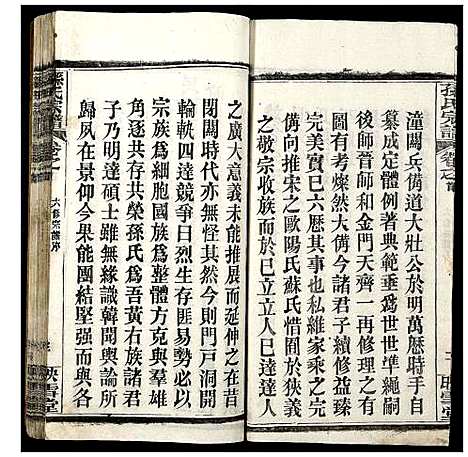 孫氏宗譜
潼關兵備道大壯公於明萬歷時手自
纂成定體例著典範垂為世世準繩嗣
後師晉師和金門天齊一再修理之有
條有考燦然大備今諸君子續修益臻
完美實已六歷其事也私維家乘之完
備向推宋之歐陽氏蘇氏惜囿於狹義
之敬宗收族而於已立立人已達達人
之廣大意義未能推展而延伸之在昔
閉關時代亦無怪其然今則門戶洞開
輪軼四達競爭日烈生存匪易勢必以
族為細胞國族為整體方克與羣雄
角逐共存共榮孫氏為吾黃右族諸君
子乃明達碩士雖無緣識韓閱輿論所
歸夙在景仰今果能團結堅强而與各
孫氏宗譜
卷之一
六修宗譜序
映雪堂